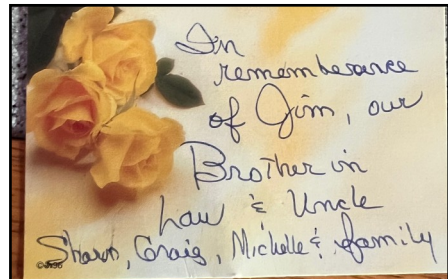 In
rememberance
of Jim, our
Brother in
Law & Uncle
Sharon, Craig, Michelle & family